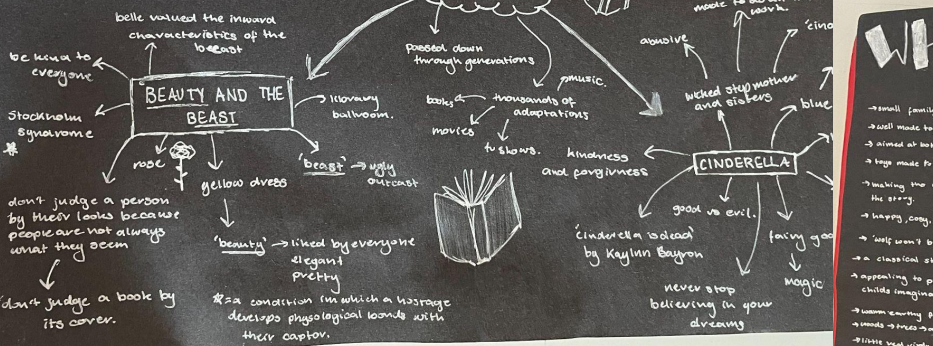 belle valued the inward
characteristics of the
beeast
be kind to
everyone
BEAUTY AND THE
BEAST
library
ballroom.
Stockholm
syndrome
*
rose
yellow dress
'beast' → ugly
outcast
don't judge a person
by their looks because
people are not always
what they seem
'don't judge a book by
its cover.
'beauty' → liked by everyone
elegant
pretty
*= a condition in which a hostage
develops physological bonds with
their captor.
passed down
through generations
music.
books
thousands of
adaptations
movies
tv shows.
made to
work.
abusive
wicked stepmother
and sisters
blue
kindness
and forgivness
CINDERELLA
good vs evil.
'cinderella is dead'
by Kaylnn Bayron
never stop
believing in your
dreams
magic
→ small
→ well made to
→ aimed at
→ toys made
→ making the
the story.
→ happy, cosy.
→ 'wolf won't b
→ a classical
→ appealing to p
childs imagina
→ warm earthy p
→ woods → trees →
→ little red